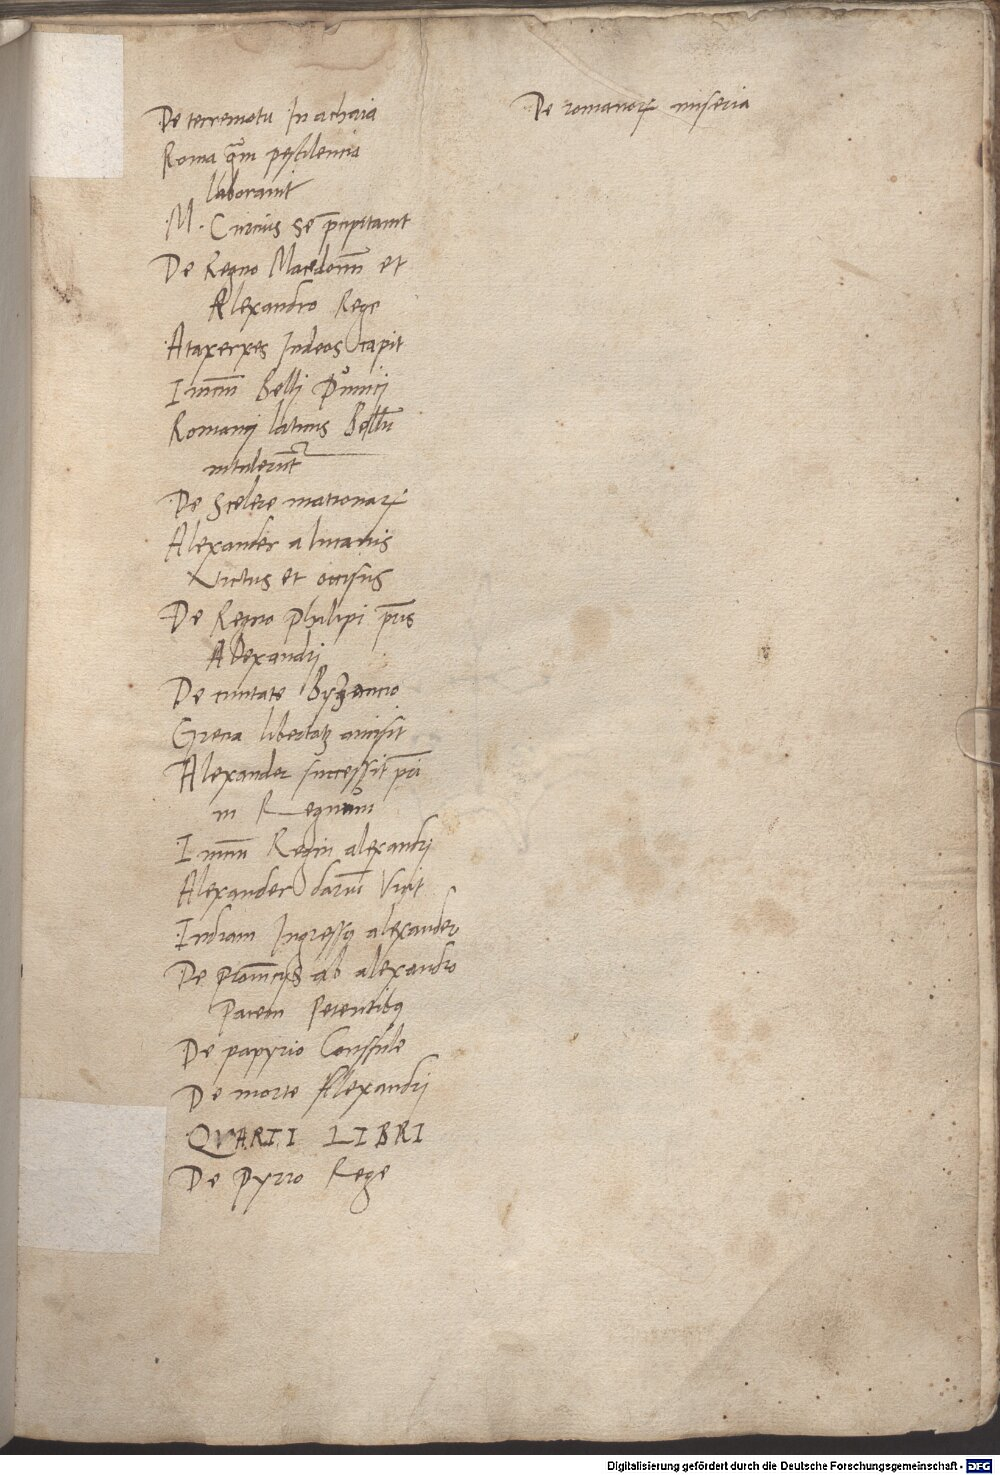 De terremotu In achaia
Roma q̄m pestilencia
laborauit
M. Curcius se p̄cipitauit
De Regno Macedonū et
Alexandro Rege
Ataxerxes Iudeos capit
Inicīū Belli Pūnicj
Romanj latinis Bellū
intulerūt
De Scelere matronaꝝ
Alexander a lucanis
Victus et occisus
De Regno Philipi pr̄is
Alexandrj
De ciuitate Byzancio
Grecia libertatē amisit
Alexander successit pr̄i
in Regnum
Inicīū Regni alexandrj
Alexander dariū Vicit
Indiam Ingressꝰ alexander
De prouīcijs ab alexandro
Pacem Petentibꝰ
De papyrio Consule
De morte Alexandrj
QVARTI LIBRI
De Pyrro Rege
De romanoꝝ miseria
Digitalisierung gefördert durch die Deutsche Forschungsgemeinschaft - DFG